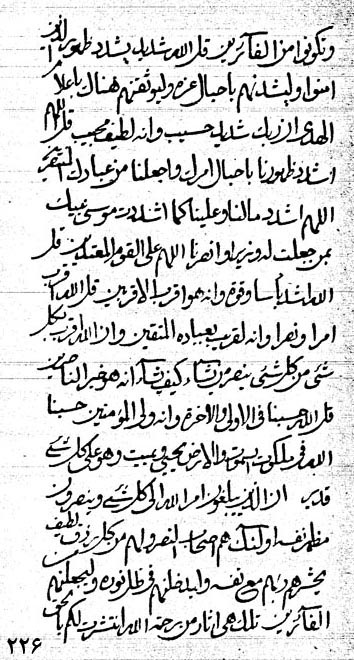 وتكونوا من الفائزين قل الله شديد يشدد ظهور الذين
امنوا وليشدنهم باحبال عزه وليوثقنهم هناك باعلا
الهدى ان ربك شديد حسيب وانه لطيف مجيب قل اللهم
اشدد ظهورنا باحبال امرك واجعلنا من عبادك
اللهم اشدد مالنا وعلينا كما اشددت موسى عبدك
بمن جعلت له وزيرا وانصرنا اللهم على القوم المعتدين قل
الله اشد بأسا وقوة وانه هو اقرب الاقربين قل الله اقرب
امرا ونصرا وانه لقريب بعباده المتقين وان الله اقرب بكل
شئ من كل شئ ينصر من يشاء كيف يشاء انه هو خير الناصرين
قل الله حسبنا فى الاولى والاخرة وانه ولى المؤمنين حسبنا
الله فى ملكوت السموات والارض يحيي ويميت وهو على كل شئ
قدير ان الذين يبلغون امر الله الى كل شئ وينصرون
مظهر نفسه اولئك هم اصحاب النصر ولهم من كل رزق لطيف
يحشرهم ربهم مع نفسه وليدخلنهم فى ظل نوره وليجعلنهم من
الفائزين تلك هى اثار من رحمة الله انتشرت لكم بالحق
٢٢٦